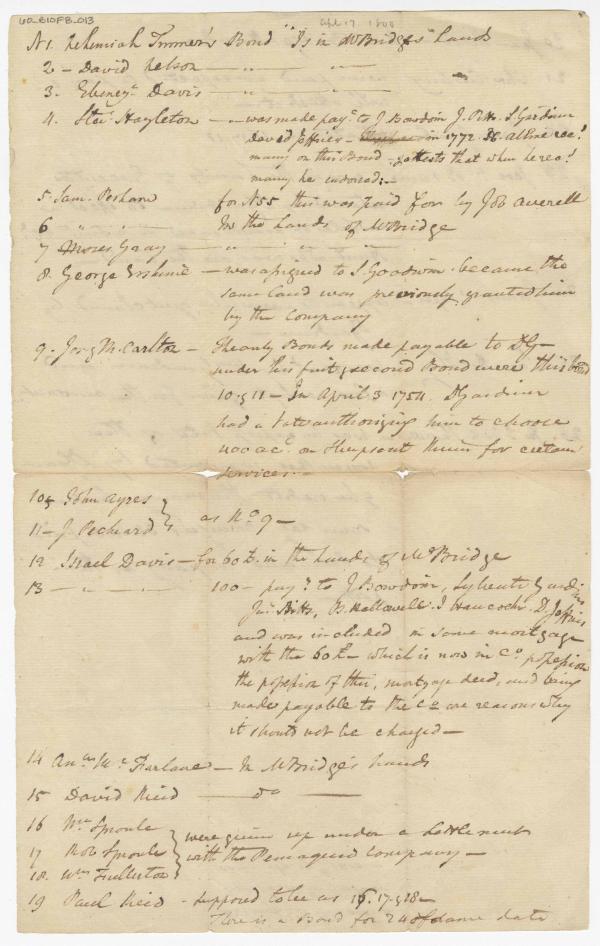 60_B10F8_013
Apl 17 1800
N 1. Nehemiah Turner's Bond "Is in McBridge's" hands
2 - David Nelson - " - "
3. Ebenezr. Davis - " - "
4. - was made payl. to J Bowdoin J. Pitts. S Gardiner
David Jeffries - in 1772
many on this Bond - attests that when he rec'd
many he endorsed: -
5 Sam. for N 55 this was paid for by Job Averell
6 " " " In the hands of McBridge
7 Moses Gray - " - " - " -
8. George Erskine - was assigned to S Goodwin. because the
same Land was previously granted him
by the Company
9. Carlton - The only Bonds made payable to DG -
under his first & second Bond were this
10 & 11 - In April 3 1754. D Gardiner
had a Vote authorizing him to choose
400 ac. on for certain
services. -
10 & John Ayres
11 - J. Pechard } as No. 9 -
12 Israel Davis - for 60 £. in the hands of McBridge
13 - " - " - 100 - payl. to J Bowdoin, Sylvester Gardiner
Pitts, B. Hallowell. J Hancock. D. Jeffries
and was included in same mortgage
with the 60 £ - which is now in Co. possession
the possession of this, mortgage deed, and being
made payable to the Co are reasons why
it should not be charged -
14 Mc. Farlane - In McBridge's hands
15 David Reid - do -
16 Wm Sproule
17 Rob Sproule } were given up under a Settlement
18. Wm Fullerton with the Pemaquid Company -
19 Paul Reid - supposed to be as 16. 17 & 18 -
There is a Bond for 24 of same date